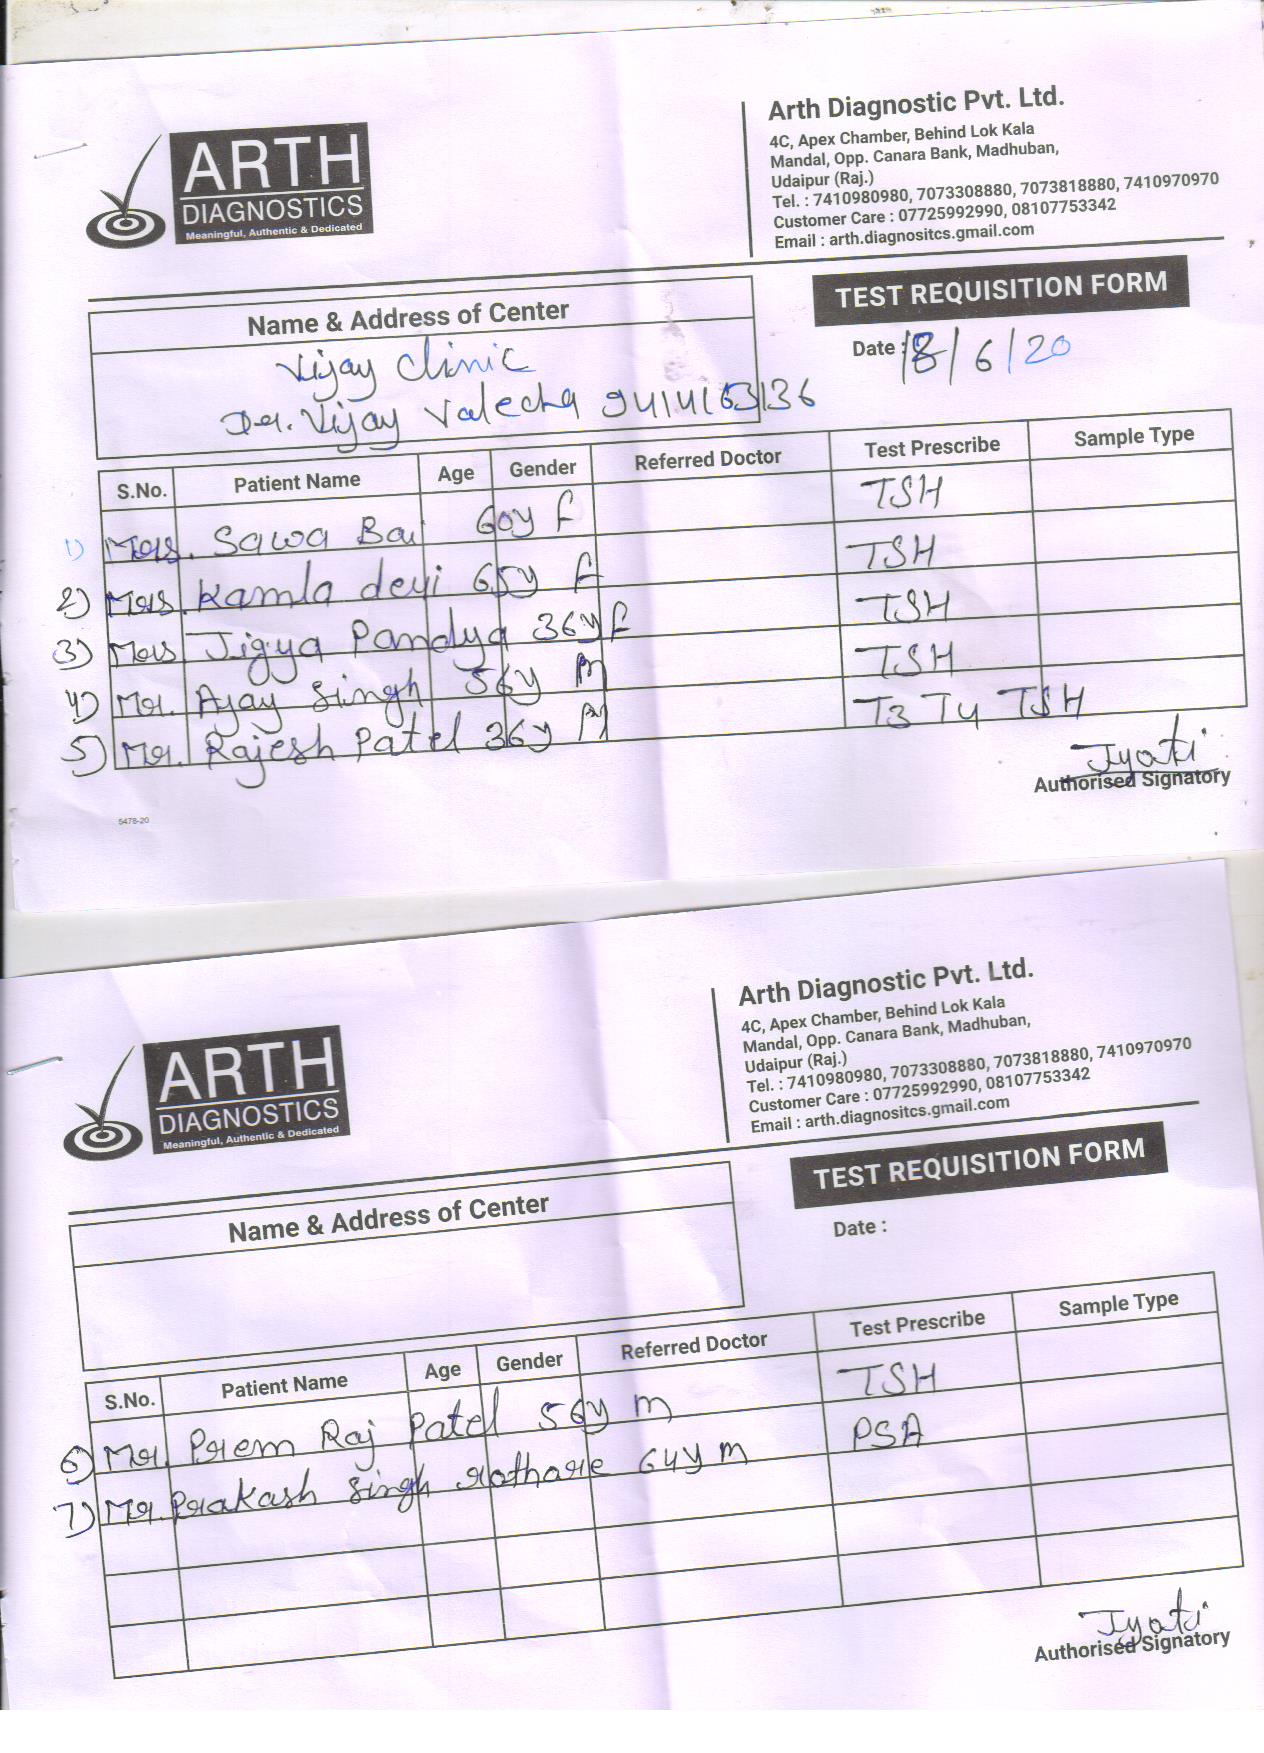 ARTH
DIAGNOSTICS
Meaningful, Authentic & Dedicated
Arth Diagnostic Pvt. Ltd.
4C, Apex Chamber, Behind Lok Kala
Mandal, Opp. Canara Bank, Madhuban,
Udaipur (Raj.)
Tel. : 7410980980, 7073308880, 7073818880, 7410970970
Customer Care : 07725992990, 08107753342
Email : arth.diagnositcs.gmail.com
TEST REQUISITION FORM
Name & Address of Center
Date : 18/6/20
Vijay Clinic
Dr. Vijay Valecha 9414163136
S.No. Patient Name Age Gender Referred Doctor Test Prescribe Sample Type
1) Mrs. Sawa Bai 60y F TSH
2) Mrs. Kamla devi 65y F TSH
3) Mrs. Jigya Pandya 36y F TSH
4) Mr. Ajay Singh 56y M TSH
5) Mr. Rajesh Patel 36y M T3 T4 TSH
Jyoti
Authorised Signatory
5478-20
ARTH
DIAGNOSTICS
Meaningful, Authentic & Dedicated
Arth Diagnostic Pvt. Ltd.
4C, Apex Chamber, Behind Lok Kala
Mandal, Opp. Canara Bank, Madhuban,
Udaipur (Raj.)
Tel. : 7410980980, 7073308880, 7073818880, 7410970970
Customer Care : 07725992990, 08107753342
Email : arth.diagnositcs.gmail.com
TEST REQUISITION FORM
Name & Address of Center
Date :
S.No. Patient Name Age Gender Referred Doctor Test Prescribe Sample Type
6) Mr. Prem Raj Patel 56y m TSH
7) Mr. Prakash Singh 64y m PSA
Jyoti
Authorised Signatory